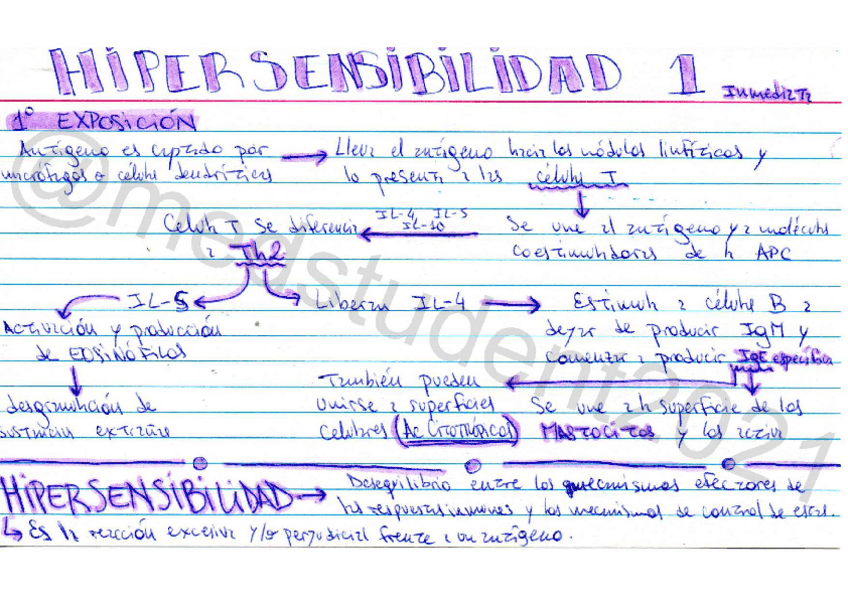 HIPERSENSIBILIDAD 1 Inmediata
1º EXPOSICIÓN
Antígeno es captado por → Lleva el antígeno hacia los nódulos linfáticos y
macrófagos o célula dendríticas lo presenta a las célula T
Célula T se diferencia IL-4, IL-5 Se une al antígeno y a molécula
IL-10
a Th2 coestimuladores de la APC
IL-5 Liberan IL-4 → Estimula a célula B a
Activación y producción dejar de producir IgM y
de EOSINÓFILOS comenzar a producir IgE específica
También pueden
desgranulación de unirse a superficies Se une a la superficie de los
sustancia extraña celulares (Ac Citotrópicos) MASTOCITOS y los activa
HIPERSENSIBILIDAD → Desequilibrio entre los mecanismos efectores de
las respuestas inmunes y los mecanismos de control de estas.
↳ Es la reacción excesiva y/o perjudicial frente a un antígeno.
@medstudent2021